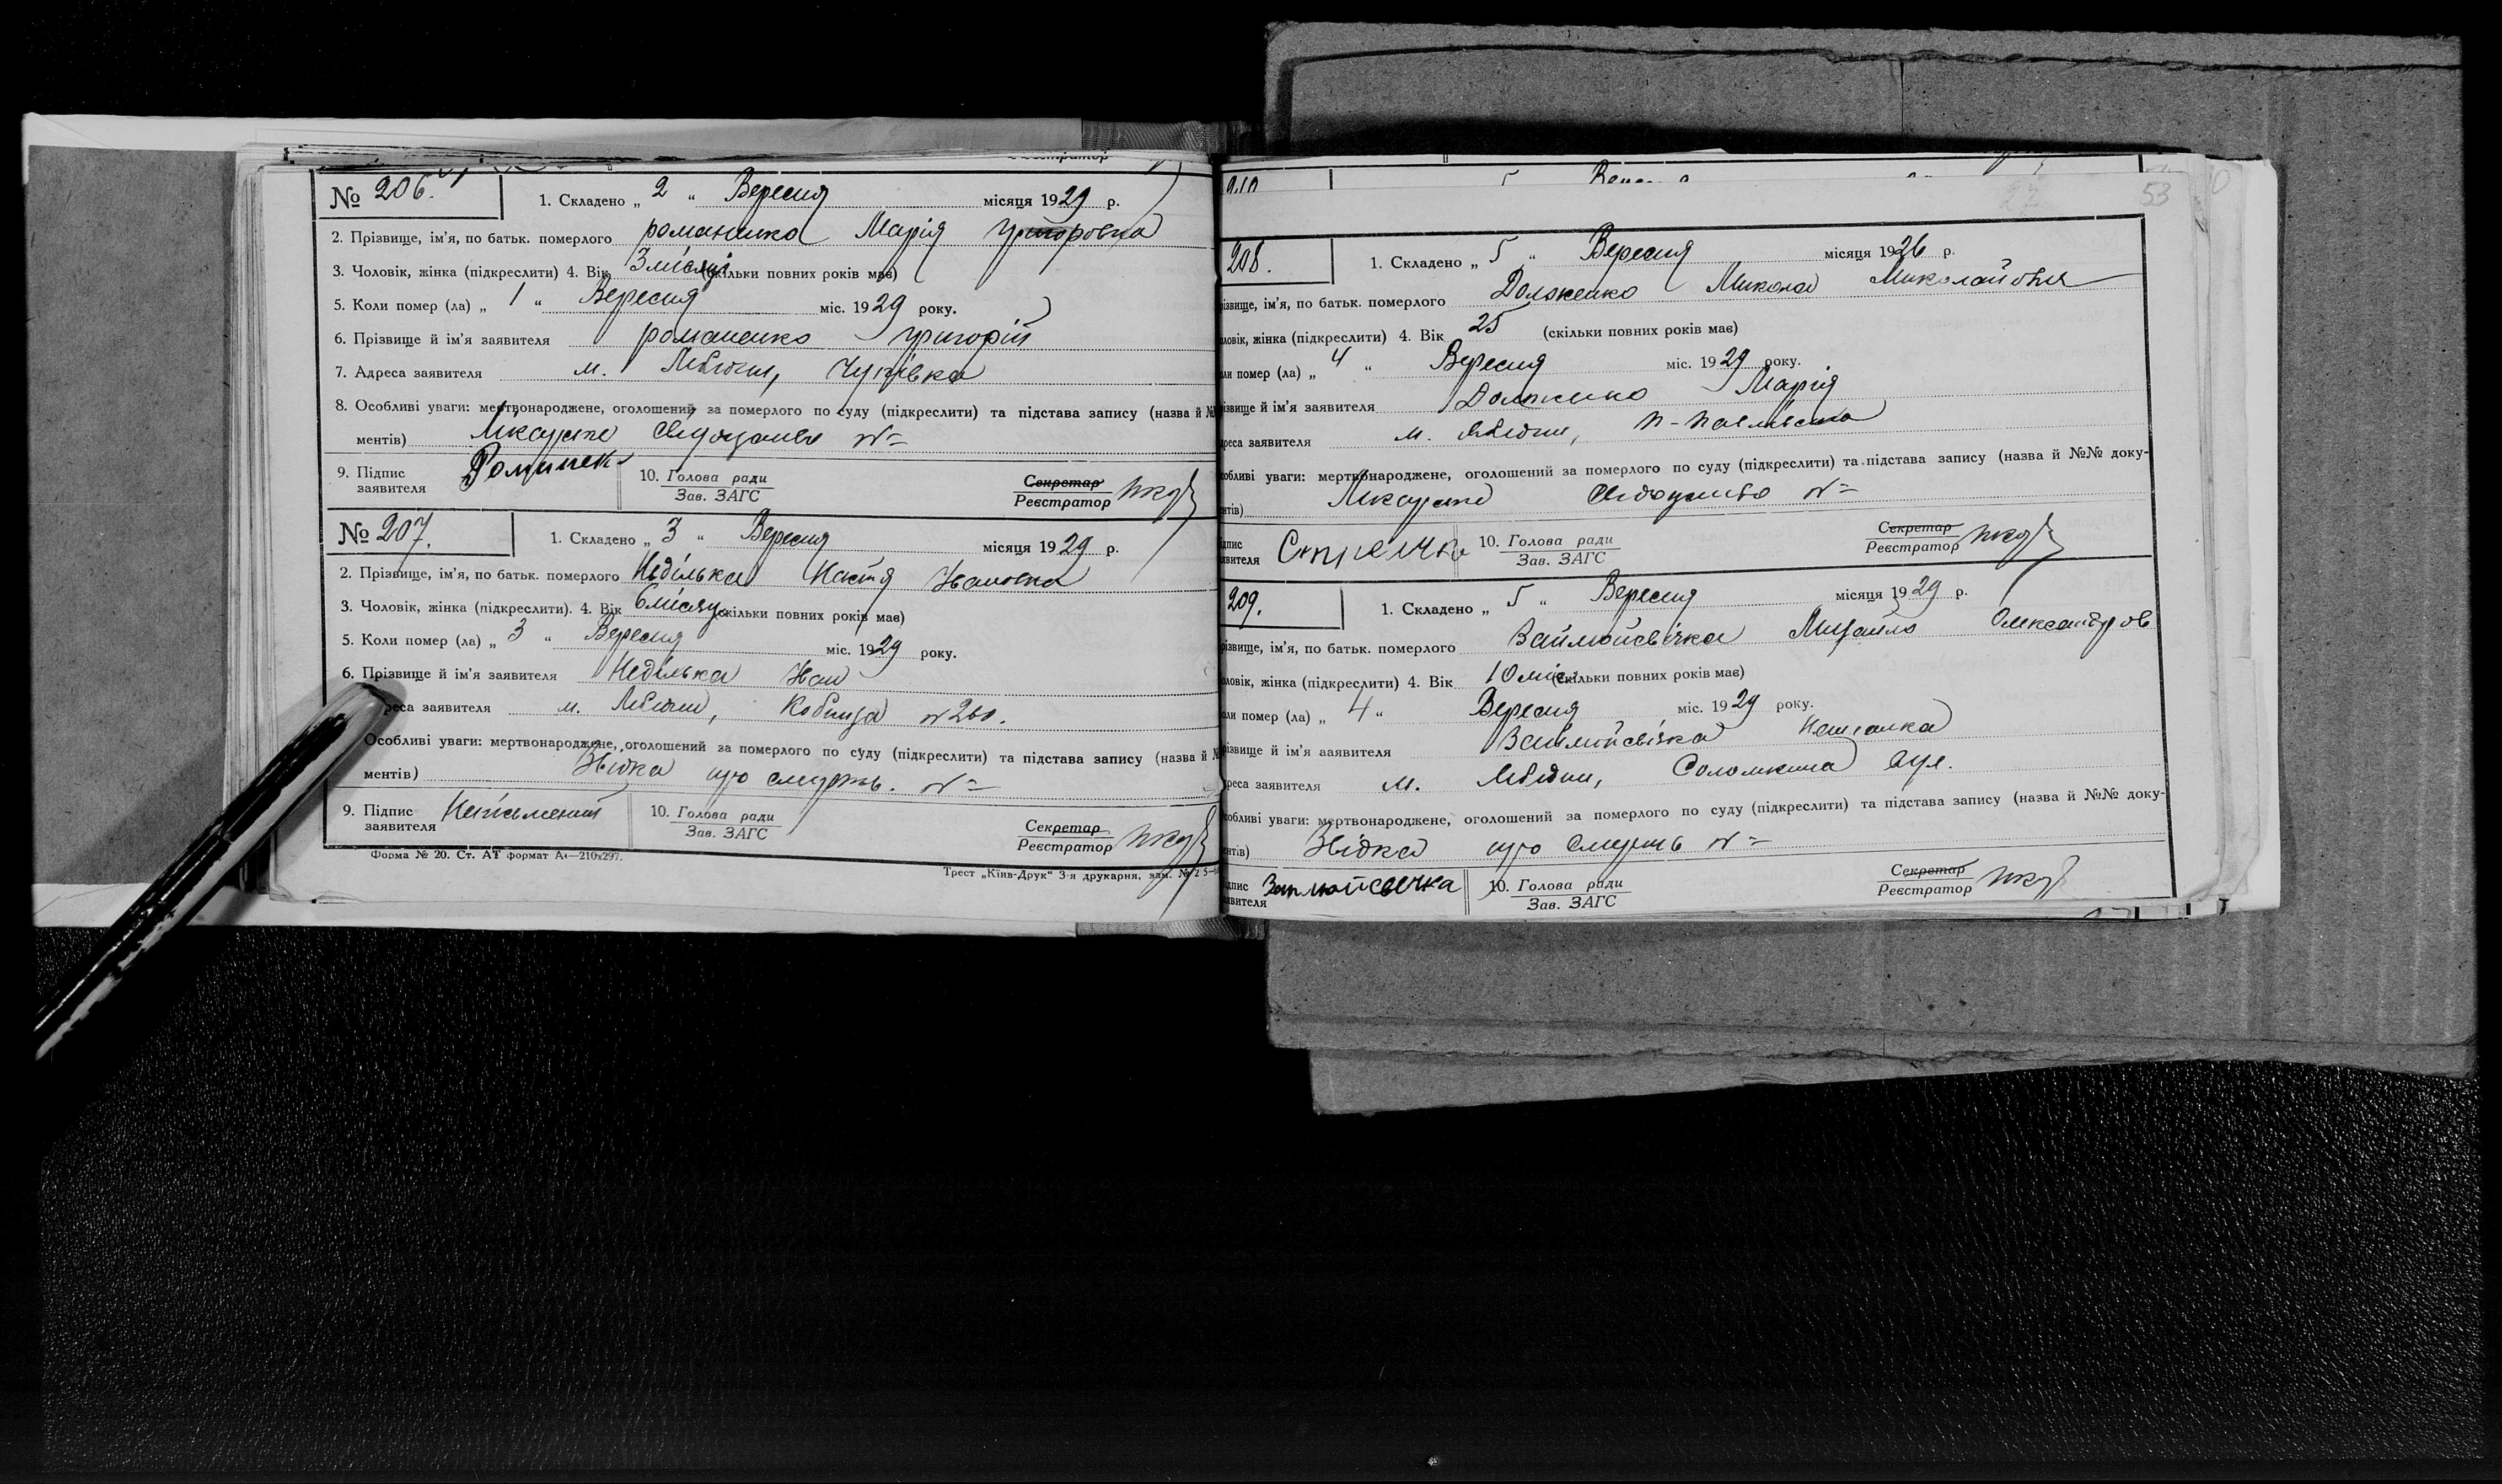 № 206. 1. Складено „ 2 “ Вересня місяця 1929 р.
2. Прізвище, ім'я, по батьк. померлого Романенко Марія Григоровна
3. Чоловік, жінка (підкреслити) 4. Вік 3 місяці (скільки повних років має)
5. Коли помер (ла) „ 1 “ Вересня міс. 1929 року.
6. Прізвище й ім'я заявителя Романенко Григорій
7. Адреса заявителя м. Лебедин,
8. Особливі уваги: мертвонароджене, оголошений за померлого по суду (підкреслити) та підстава запису (назва й №
ментів) Лікарське свідоцтво №=
9. Підпис заявителя 10. Голова ради Зав. ЗАГС Секретар Реєстратор
№ 207. 1. Складено „ 3 “ Вересня місяця 1929 р.
2. Прізвище, ім'я, по батьк. померлого Неділька Настя Івановна
3. Чоловік, жінка (підкреслити). 4. Вік 6 місяц. (скільки повних років має)
5. Коли помер (ла) „ 3 “ Вересня міс. 1929 року.
6. Прізвище й ім'я заявителя Неділька Іван
реса заявителя м. Лебедин, Кобища № 260.
Особливі уваги: мертвонароджене, оголошений за померлого по суду (підкреслити) та підстава запису (назва й №
ментів) Звідка про смерть. №=
9. Підпис заявителя Неписьменний 10. Голова ради Зав. ЗАГС Секретар Реєстратор
Форма № 20. Ст. АТ формат А4—210х297.
Трест „Київ-Друк“ 3-я друкарня, зам. №
210 5
53
208. 1. Складено „ 5 “ Вересня місяця 1926 р.
різвище, ім'я, по батьк. померлого Долженко Микола Миколайович
ловік, жінка (підкреслити) 4. Вік 25 (скільки повних років має)
оли помер (ла) „ 4 “ Вересня міс. 1929 року.
ізвище й ім'я заявителя Долженко Марія
реса заявителя м. Лебедин,
обливі уваги: мертвонароджене, оголошений за померлого по суду (підкреслити) та підстава запису (назва й №№ доку-
нтів) Лікарське свідоцтво №=
дпис явителя 10. Голова ради Зав. ЗАГС Секретар Реєстратор
209. 1. Складено „ 5 “ Вересня місяця 1929 р.
різвище, ім'я, по батьк. померлого Займойсвічка Михайло Олександров
ловік, жінка (підкреслити) 4. Вік 10 міс. (скільки повних років має)
оли помер (ла) „ 4 “ Вересня міс. 1929 року.
різвище й ім'я заявителя Займойсвічка
реса заявителя м. Лебедин, вул.
обливі уваги: мертвонароджене, оголошений за померлого по суду (підкреслити) та підстава запису (назва й №№ доку-
ентів) Звідка про смерть №=
дпис явителя 10. Голова ради Зав. ЗАГС Секретар Реєстратор